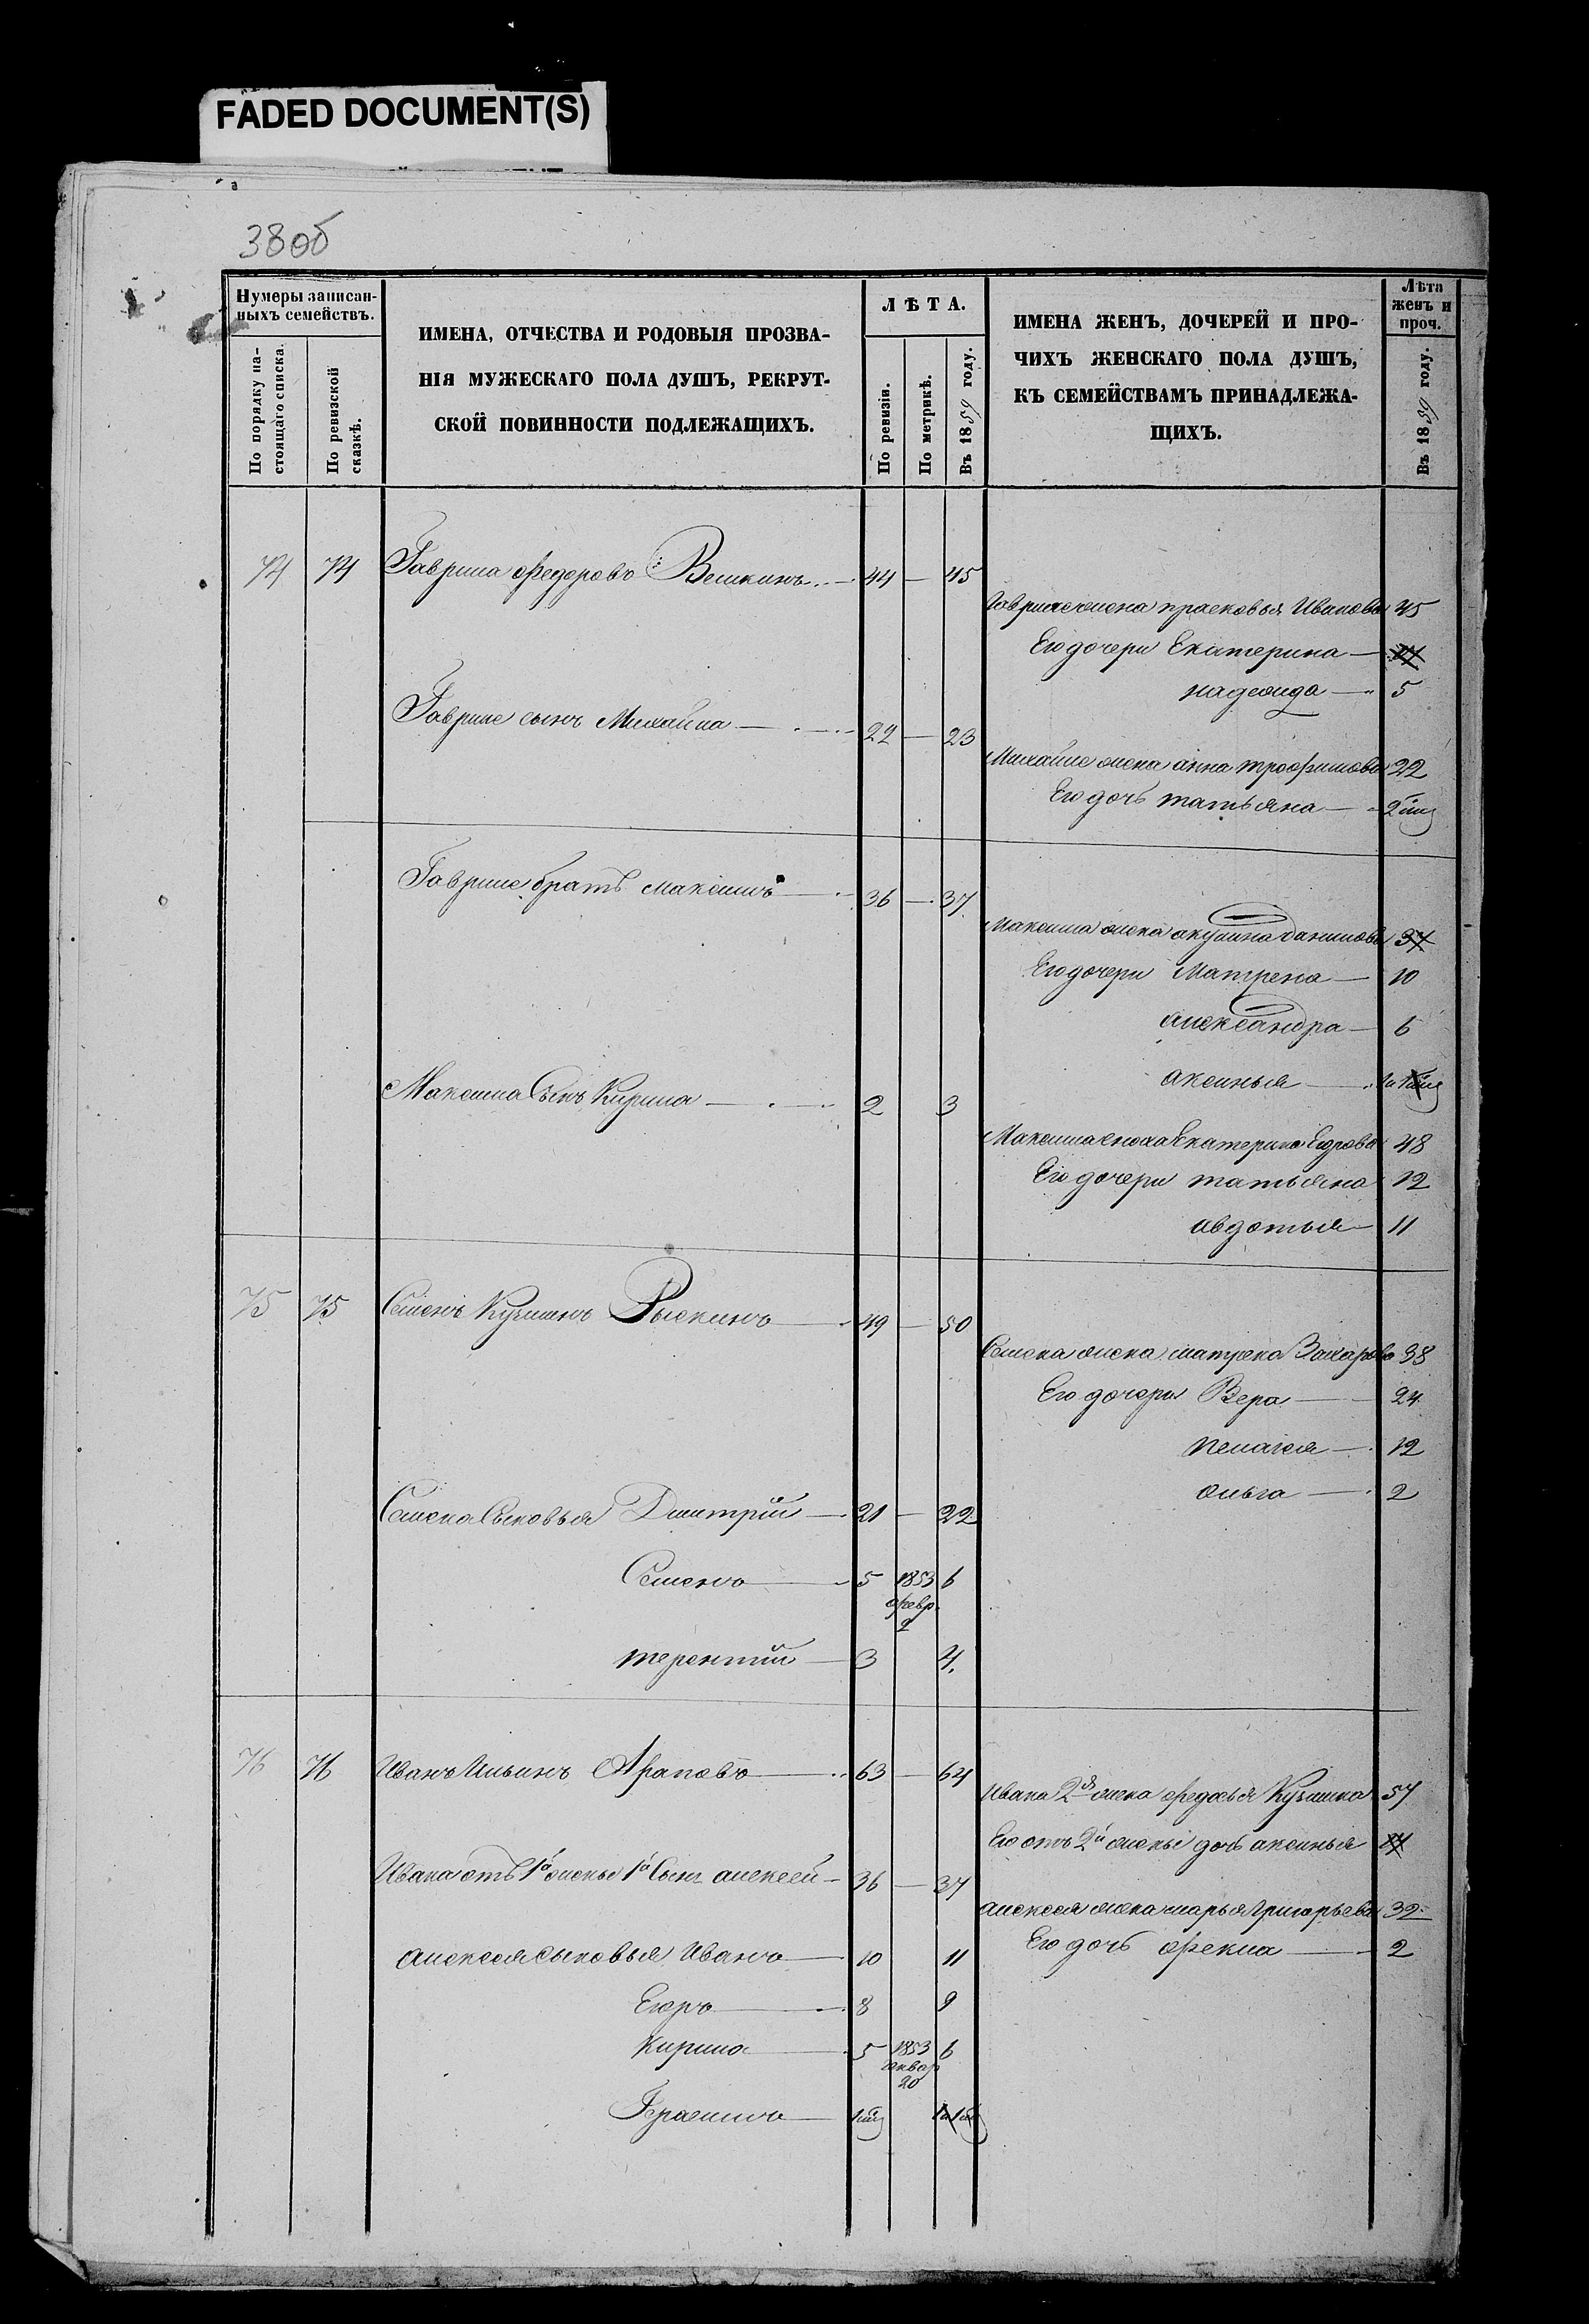 FADED DOCUMENT(S)
38об
Нумеры записан-
ныхъ семействъ.
По порядку на-
стоящаго списка.
По ревизской
сказкѣ.
ИМЕНА, ОТЧЕСТВА И РОДОВЫЯ ПРОЗВА-
НІЯ МУЖЕСКАГО ПОЛА ДУШЪ, РЕКРУТ-
СКОЙ ПОВИННОСТИ ПОДЛЕЖАЩИХЪ.
ЛѢТА.
По ревизіи.
По метрикѣ.
Въ 1859 году.
ИМЕНА ЖЕНЪ, ДОЧЕРЕЙ И ПРО-
ЧИХЪ ЖЕНСКАГО ПОЛА ДУШЪ,
КЪ СЕМЕЙСТВАМЪ ПРИНАДЛЕЖА-
ЩИХЪ.
Лѣта
женъ и
проч.
Въ 1859 году.
74 74 Гаврила Федоровъ 44 — 45
Гаврилы жена прасковья Иванова 45
Его дочери Екатерина —
надежда — 5
Гаврилы сынъ Михайла — 22 — 23
Михайлы жена анна трофимова 22
Его дочь татьяна —
Гаврилы братъ максимъ — 36 — 37
Максима жена акулина данилова 37
Его дочери Матрена — 10
александра — 6
аксинья —
Максима Сынъ Кирила — 2 3
Максима сноха Екатерина Егорова 48
Его дочери татьяна 12
авдотья — 11
75 75 Семенъ Кузминъ Рыскинъ — 49 — 50
Семена жена матрена Захарова 38
Его дочери Вера — 24
пелагея — 12
ольга — 2
Семена Сыновья Дмитрій — 21 — 22
Семенъ — 5 1853 6
февр.
2
терентий — 3 4.
76 76 Иванъ Ильинъ Араповъ — 63 — 64
Ивана 2я жена федосья Кузмина 57
Его отъ 2й жены дочь аксинья
Ивана отъ 1й жены 1й Сынъ алексей — 36 — 37
алексея жена марья Григорьева 32
Его дочь фекла — 2
алексея сыновья Иванъ — 10 11
Егоръ — 8 9
Кирила — 5 1853 6
январ
20
Герасимъ —